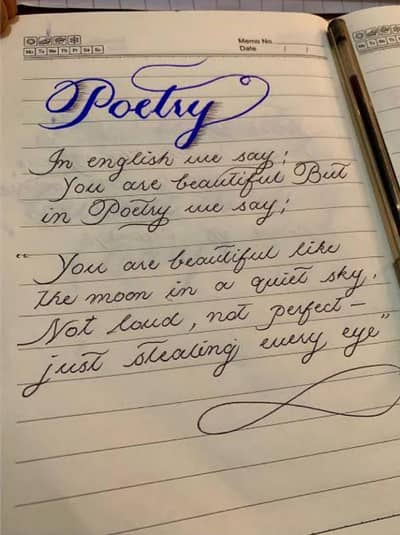 Memo No.
Date / /
Mo Tu We Th Fr Sa Su
Poetry
In english we say;
You are beautiful But
in Poetry we say;
"You are beautiful like
the moon in a quiet sky.
Not loud, not perfect—
just stealing every eye"